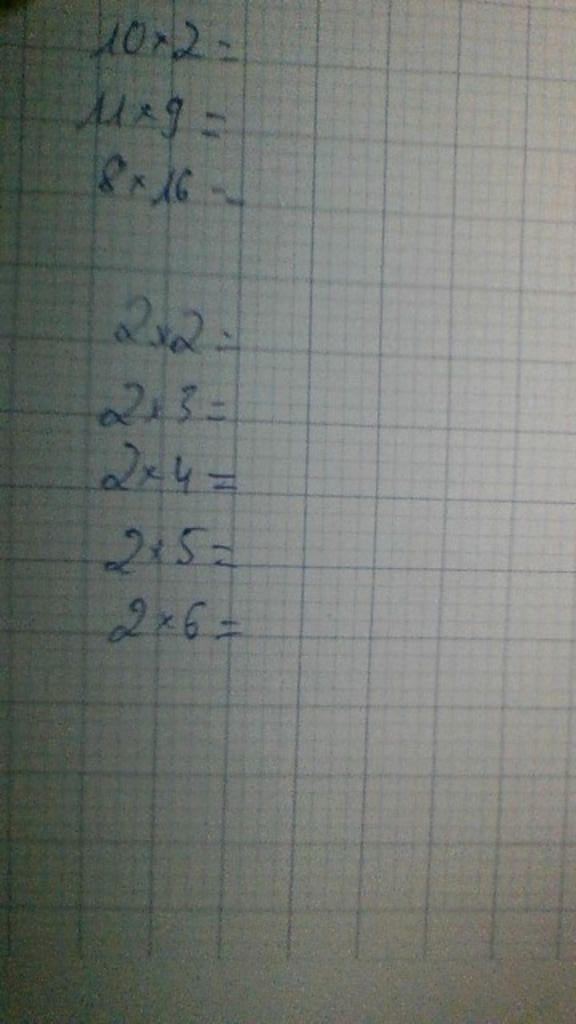 10×2=
11×9=
8×16=
2×2=
2×3=
2×4=
2×5=
2×6=